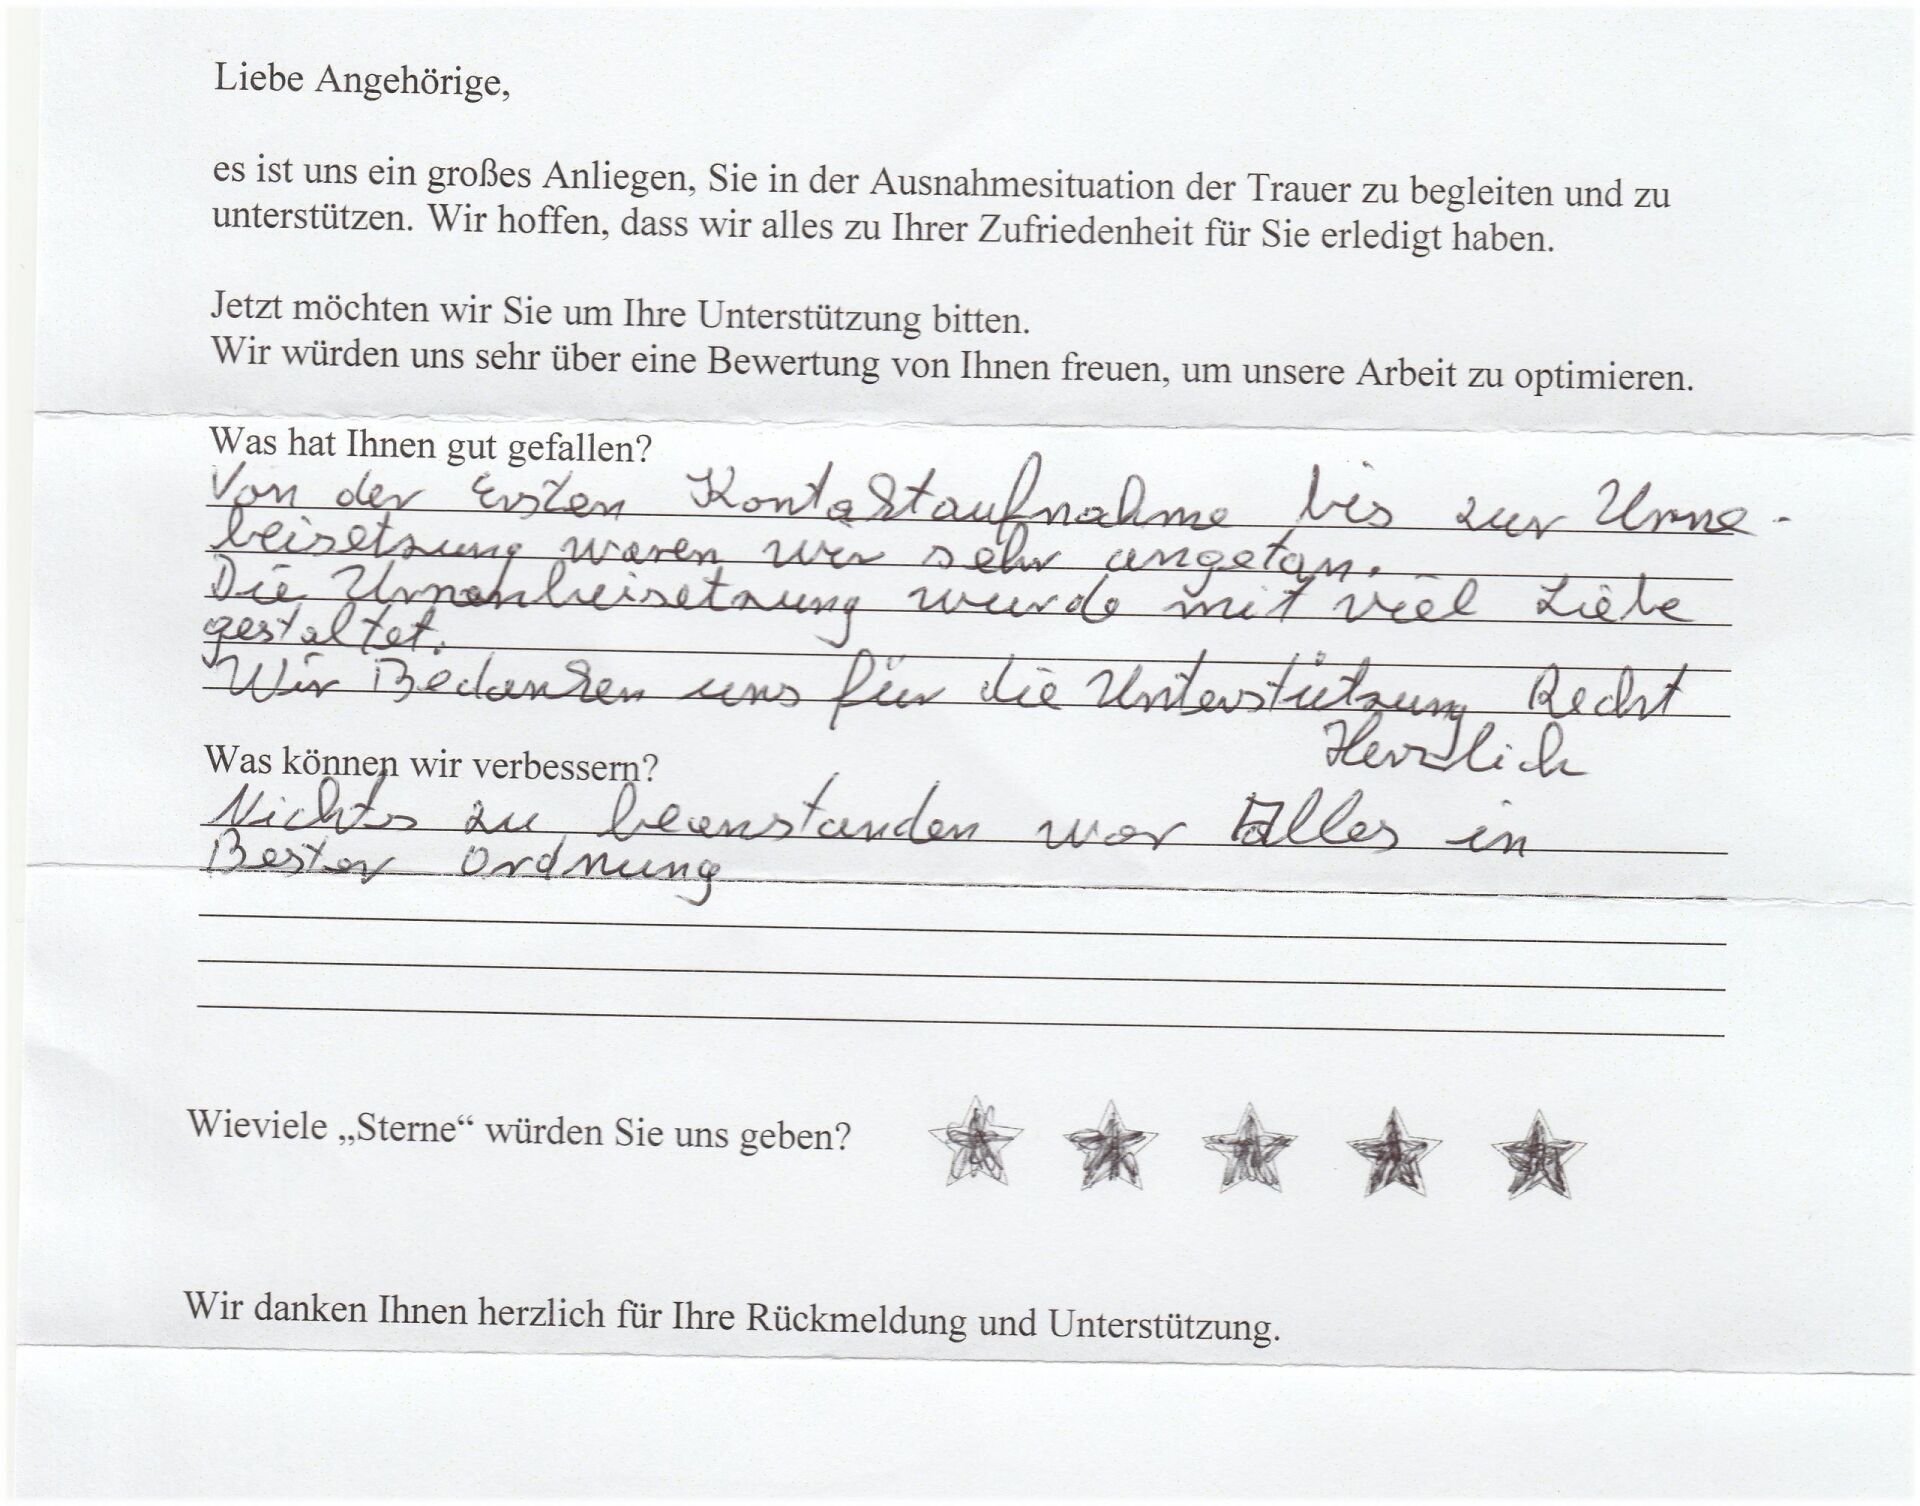 Liebe Angehörige,
es ist uns ein großes Anliegen, Sie in der Ausnahmesituation der Trauer zu begleiten und zu
unterstützen. Wir hoffen, dass wir alles zu Ihrer Zufriedenheit für Sie erledigt haben.
Jetzt möchten wir Sie um Ihre Unterstützung bitten.
Wir würden uns sehr über eine Bewertung von Ihnen freuen, um unsere Arbeit zu optimieren.
Was hat Ihnen gut gefallen?
Von der Ersten Kontaktaufnahme bis zur Urne-
beisetzung waren wir sehr angetan.
Die Urnenbeisetzung wurde mit viel Liebe
gestaltet.
Wir Bedanken uns für die Unterstützung Recht
Herzlich
Was können wir verbessern?
Nichts zu beanstanden war Alles in
Bester Ordnung
Wieviele „Sterne“ würden Sie uns geben?
Wir danken Ihnen herzlich für Ihre Rückmeldung und Unterstützung.